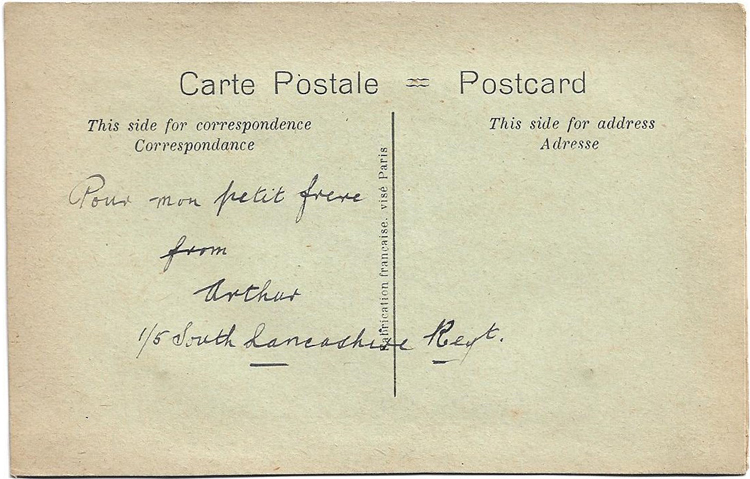 Carte Postale = Postcard
This side for correspondence
Correspondance
This side for address
Adresse
Fabrication française. visé Paris
Pour mon petit frere
from
Arthur
1/5 South Lancashire Regt.